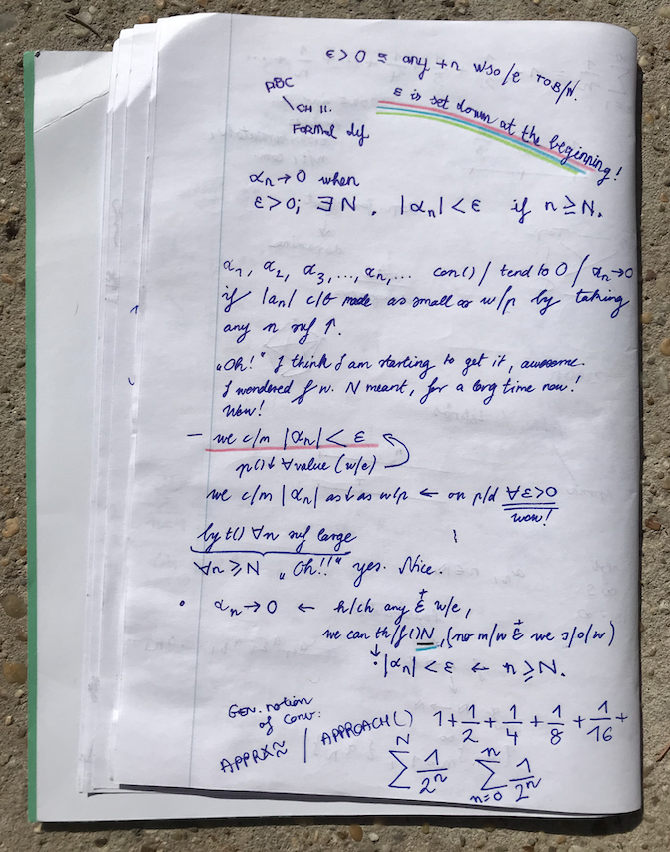 ε>0 ≡ any +n wso/e TOB/N.
ABC
CH 11.
FORMAL def
ε is set down at the beginning!
αn→0 when
ε>0; ∃N. |αn|<ε if n≥N.
α1, α2, α3, ..., αn, ... con() / tend to 0 / αn→0
if |an| c/b made as small as w/p by taking
any n suf ↑.
"Oh!" I think I am starting to get it, awesome.
I wondered f w. N meant, for a long time now!
Wow!
– we c/m |αn| < ε
p()↓ ∀value (w/e)
we c/m |αn| as↓ as w/p ← on p/d ∀ε>0
wow!
by t() ∀n suf large
∀n≥N "Oh!!" yes. Nice.
• αn→0 ← h/ch any ε+ w/e,
we can th/f()N, (no m/w ε+ we s/o/w)
↓
• |αn|<ε ← n≥N.
GEN. notion
of conv:
APPRX≈ / APPROACH() 1+1/2+1/4+1/8+1/16+
N∑ 1/2^n n∑n=0 1/2^n